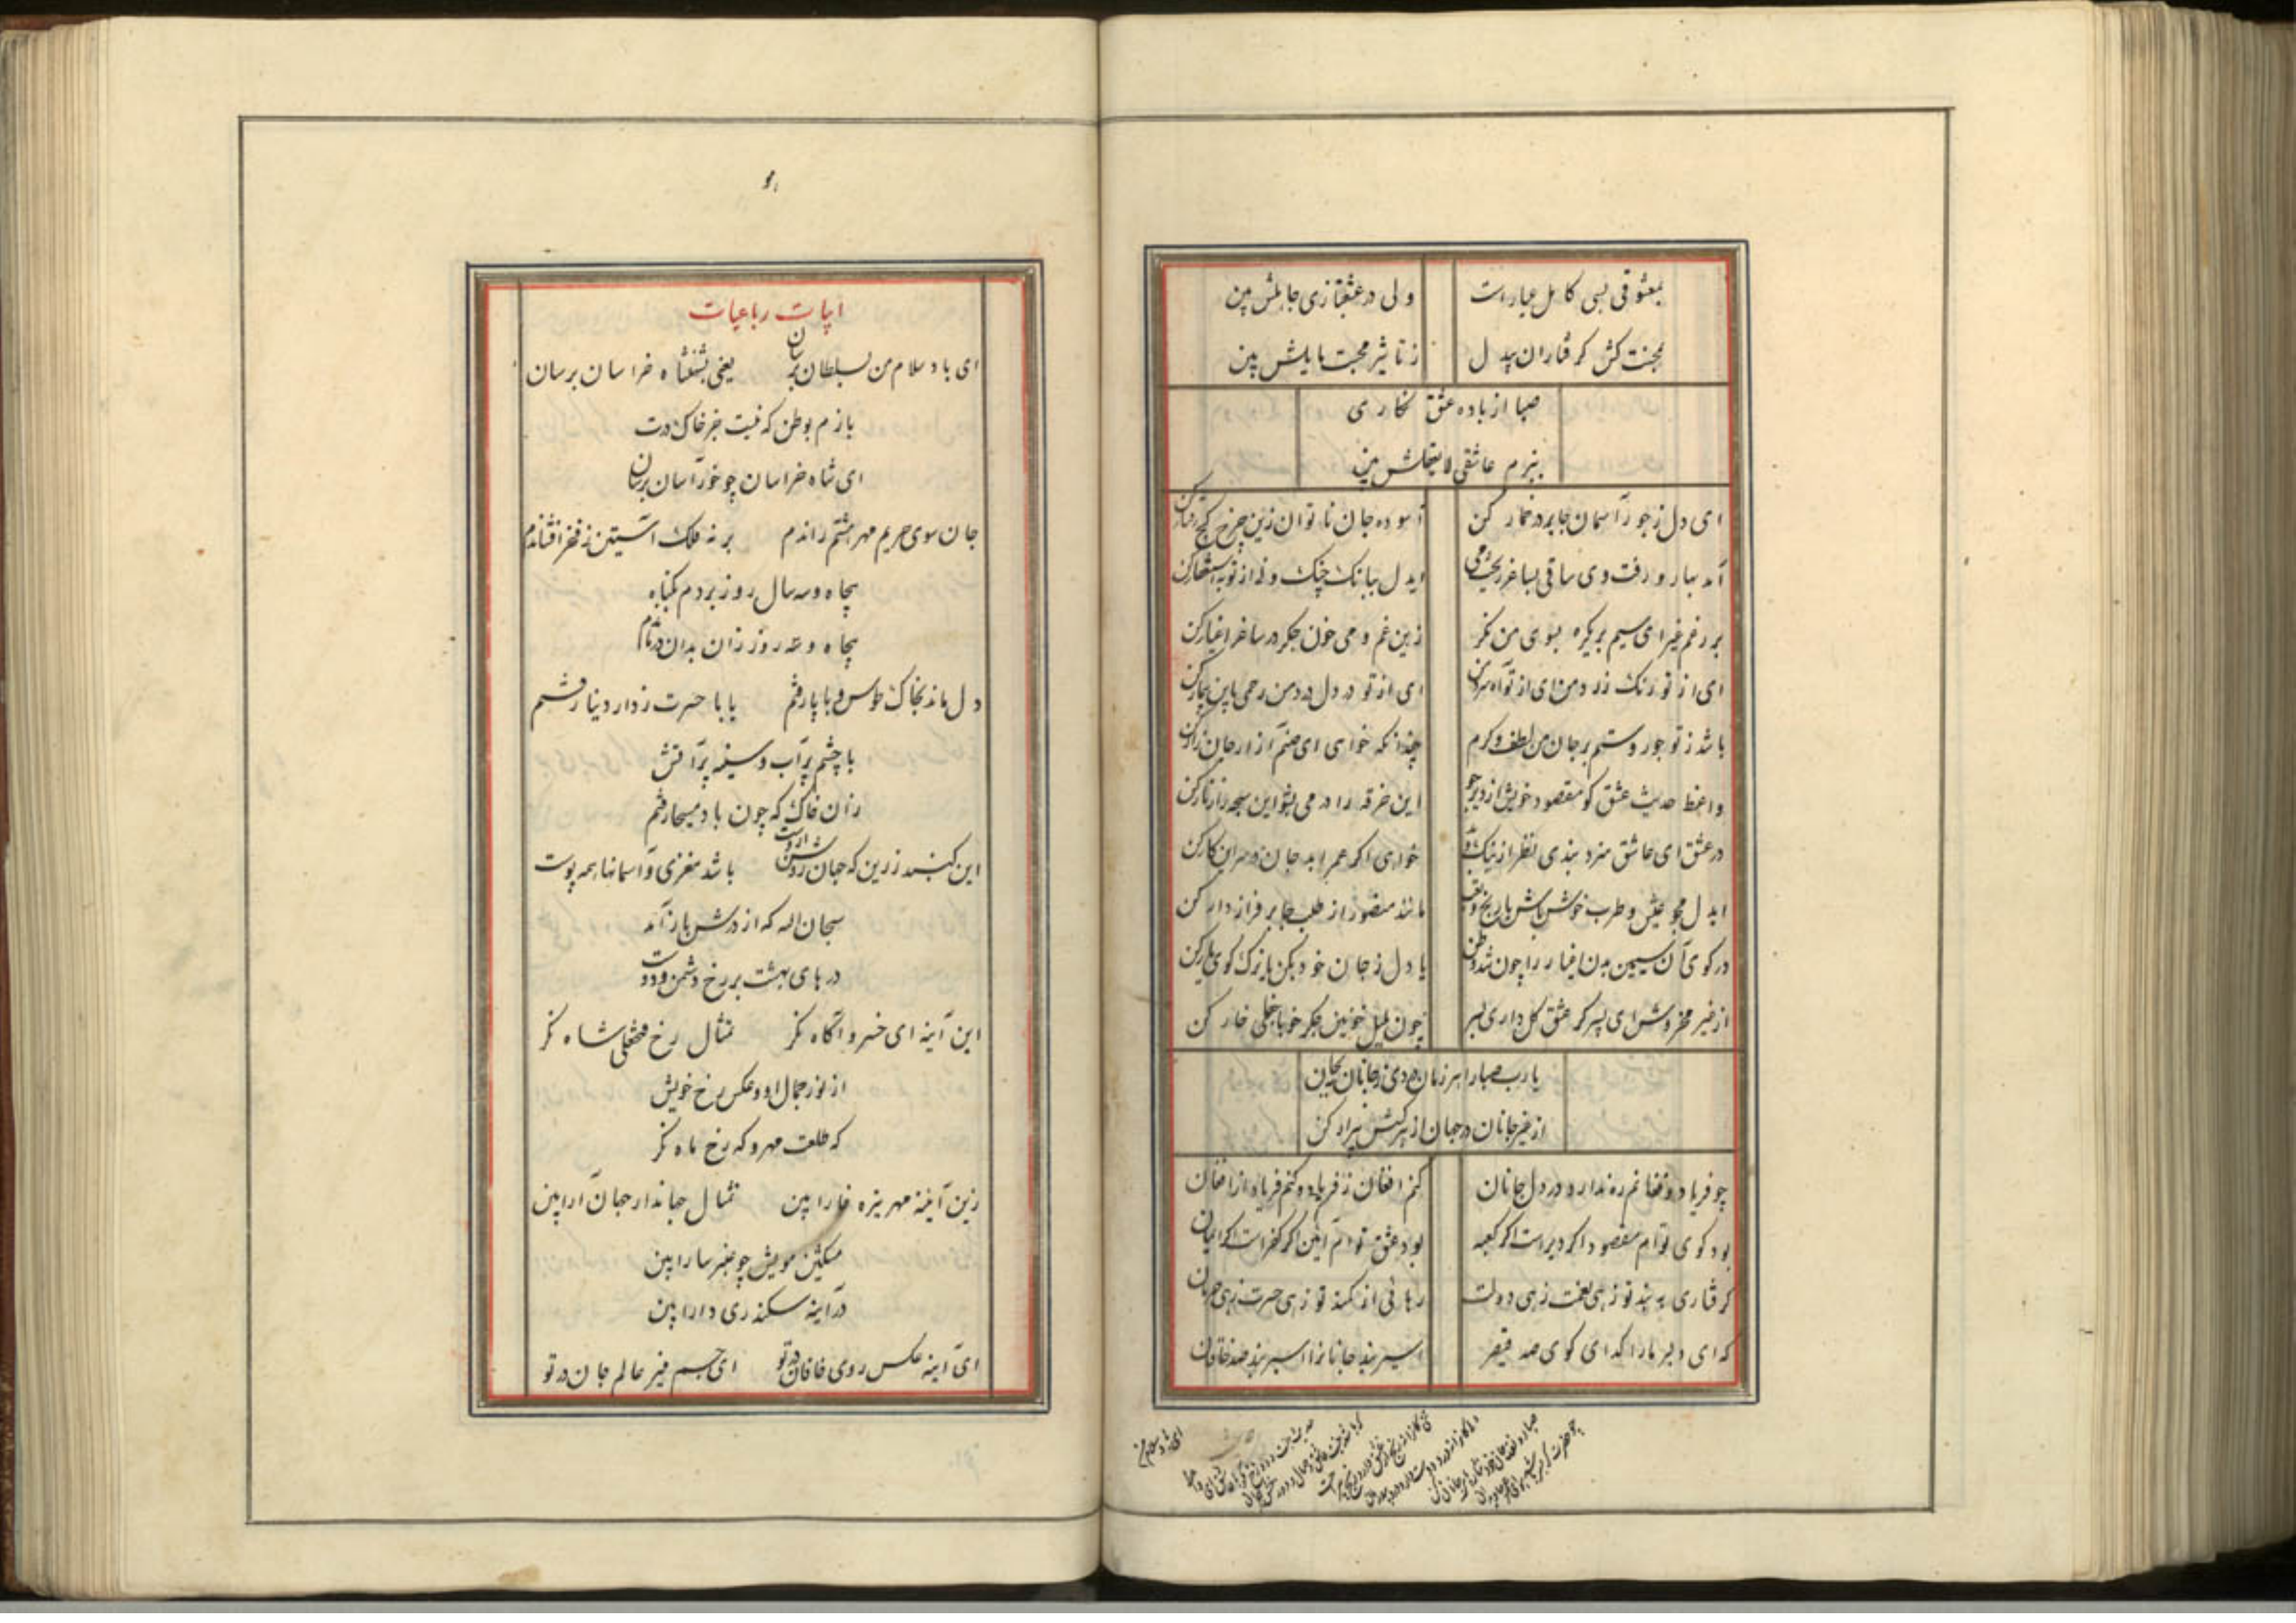 بمعشوقی بسی کامل عیار است ولی در عشقبازی جاهلش بین
بمحنت کش گرفتاران بیدل ز تاثیر محبت مایلش بین
صبا از باده عشق نگاری
ببزم عاشقی لایعقلش بین
ای دل ز جور آسمان جا بر در خمار کن آسوده جان ناتوان زین چرخ کج رفتار کن
آمد بهار و رفت دی ساقی بساغر ریخت می ایدل ببانگ چنگ و نی از توبه استغفار کن
بر رغم غیر ای سیم بر یکره بسوی من نگر زین غم و می خون جگر در ساغر اغیار کن
ای از تو رنگ زرد من وی از تو آه سرد من ای از تو در دل درد من رحمی باین بیمار کن
باشد ز تو جور و ستم بر جان من لطف و کرم چندانکه خواهی ای صنم آزار جان زار کن
واعظ حدیث عشق گو مقصود خویش از دیر جو این خرقه را در می بشو این سبحه را زنار کن
در عشق ای عاشق مزد بندی نظر از نیک و بد خواهی اگر عمر ابد جان در سر این کار کن
ایدل مجو عیش و طرب خوش باش با رنج و تعب مانند منصور از طلب جا بر فراز دار کن
در کوی آن سیمین بدن اغیار را چون شد وطن یا دل ز جان خود بکن یا ترک کوی یار کن
از غیر مخروش ای پسر گر عشق گل داری بسر چون بلبل خونین جگر خو با جفای خار کن
یارب صبا را هر زمان دردی ز جانان بجان
از غیر جانان در جهان از هر کسش بیزار کن
چو فریاد و فغانم ره ندارد در دل جانان کنم افغان ز فریاد و کنم فریاد از افغان
بود کوی توام مقصود اگر دیر است اگر کعبه بود عشق توام آیین اگر کفر است اگر ایمان
گرفتاری به بند تو زهی نعمت زهی دولت رهائی از کمند تو زهی حسرت زهی حرمان
گدای دلبر ما را گدای کوی صد قیصر اسیر بند جانانرا اسیر بند صد خاقان
ای باد سلام من
ابیات رباعیات
ای باد سلام من بسلطان برسان یعنی بشهنشاه خراسان برسان
بازم بوطن که نیست جز خاک درت
ای شاه خراسان چو خور آسان برسان
جان سوی حریم مهر هشتم راندم بر نه فلک آستین ز فخر افشاندم
پنجاه و سه سال روز بردم بگناه
پنجاه و سه روز زان بدان در ماندم
دل ماند بخاک طوس و با پا رفتم یا با حسرت ز دار دنیا رفتم
با چشم پر آب و سینه پر آتش
زان خاک که چون باد مسیحا رفتم
این گنبد زرین که جهان روشن ازوست باشد مغزی و آسمانها همه پوست
سبحان اله که از درش باز آمد
درهای بهشت بر رخ دشمن و دوست
این آینه ای خسرو آگاه نگر تمثال رخ فتحعلی شاه نگر
از نور جمال او و عکس رخ خویش
که طلعت مهر و که رخ ماه نگر
زین آینه مهر بزه خارا بین تمثال جهاندار جهان آرا بین
مشکین مویش چو عنبر سارا بین
در آینه سکندری دارا بین
ای آینه عکس روی خاقان در تو ای جسم منیر عالم جان در تو